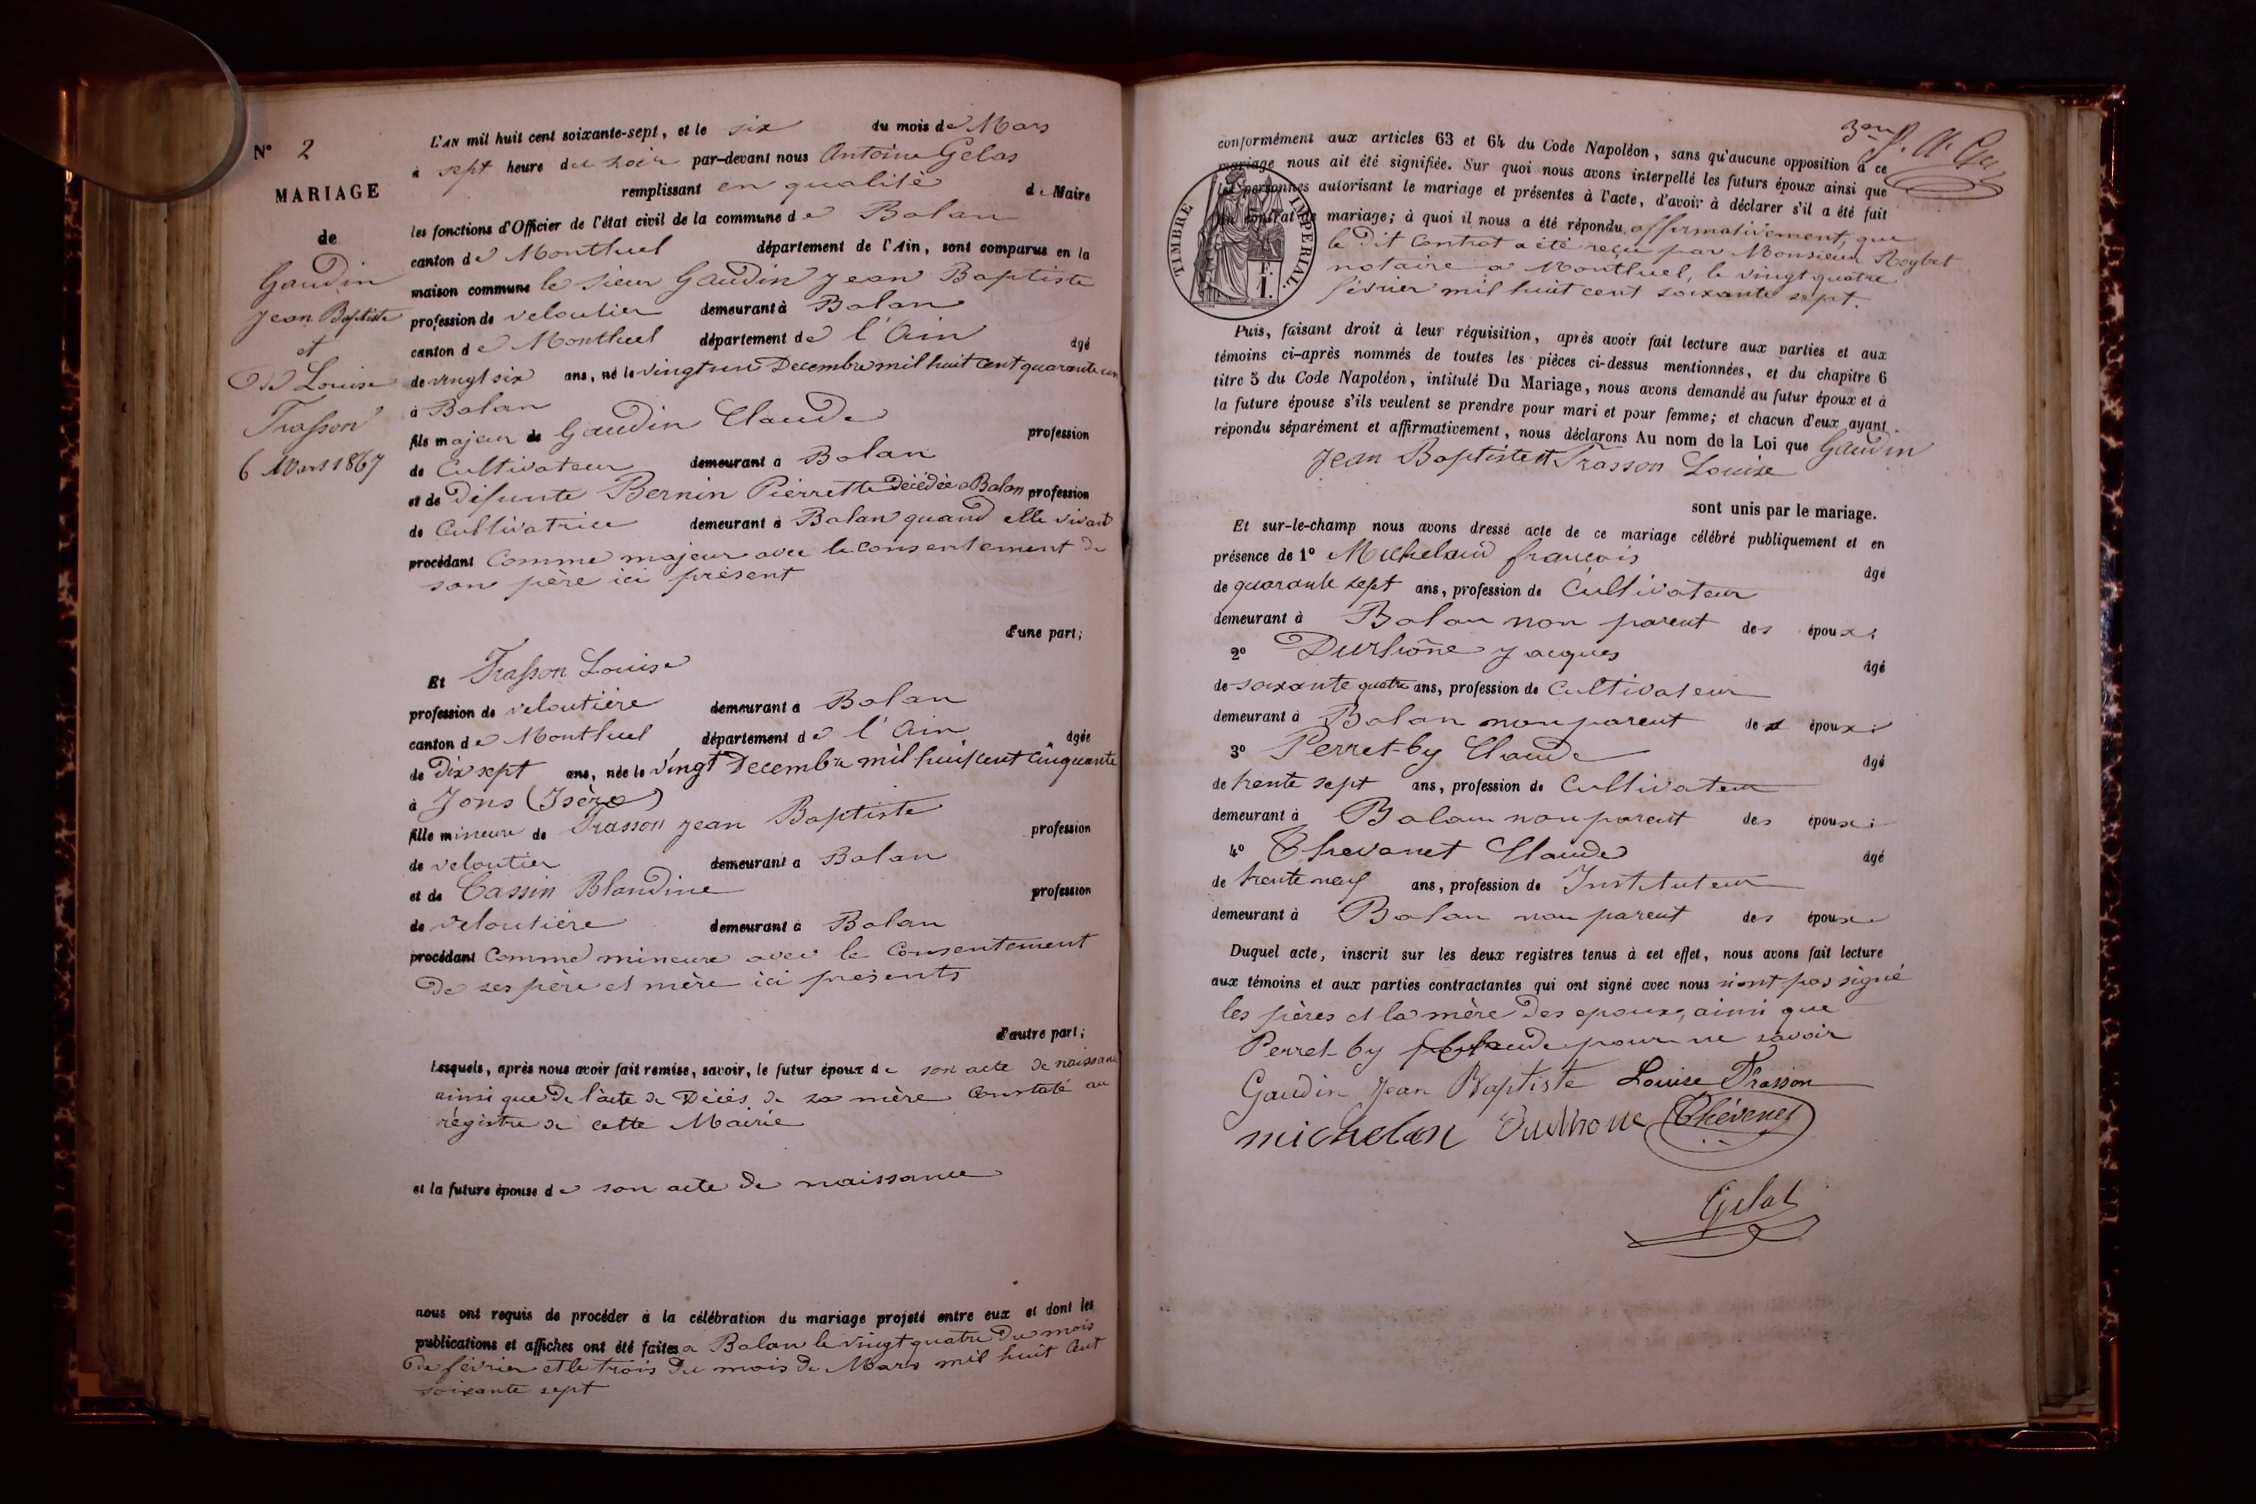 N° 2
MARIAGE
de
Gaudin
Jean Baptiste
et
de Louise
Trasson
6 Mars 1867
L'AN mil huit cent soixante-sept, et le six du mois de Mars
à sept heure du soir par-devant nous Antoine Gelas
remplissant en qualité de Maire
les fonctions d'Officier de l'état civil de la commune de Balan
canton de Montluel département de l'Ain, sont comparus en la
maison commune le sieur Gaudin Jean Baptiste
profession de veloutier demeurant à Balan
canton de Montluel département de l'Ain âgé
de vingt six ans, né le vingt un Decembre mil huit cent quarante un
à Balan
fils majeur de Gaudin Claude profession
de Cultivateur demeurant à Balan
et de défunte Bernin Pierrette Décédée a Balan profession
de Cultivatrice demeurant à Balan quand elle vivait
procédant Comme majeur avec le consentement de
son père ici présent
d'une part;
Et Trasson Louise
profession de veloutière demeurant à Balan
canton de Montluel département de l'Ain âgée
de Dix sept ans, née le vingt Decembre mil huit cent Cinquante
à Jons (Isère)
fille mineure de Trasson Jean Baptiste profession
de veloutier demeurant à Balan
et de Cassin Blandine profession
de veloutière demeurant à Balan
procédant Comme mineure avec le Consentement
De ses père et mère ici présents
d'autre part;
Lesquels, après nous avoir fait remise, savoir, le futur époux de son acte de naissance
ainsi que de l'acte de Décès de sa mère Constaté au
régistre de cette Mairie
et la future épouse de son acte de naissance
nous ont requis de procéder à la célébration du mariage projeté entre eux et dont les
publications et affiches ont été faites a Balan le vingt quatre du mois
de février et le trois du mois de Mars mil huit Cent
soixante sept
conformément aux articles 63 et 64 du Code Napoléon, sans qu'aucune opposition à ce
mariage nous ait été signifiée. Sur quoi nous avons interpellé les futurs époux ainsi que
les personnes autorisant le mariage et présentes à l'acte, d'avoir à déclarer s'il a été fait
un contrat de mariage; à quoi il nous a été répondu affirmativement, que
le dit Contrat a été reçu par Monsieur Roybet
notaire a Montluel, le vingt quatre
février mil huit cent soixante sept.
TIMBRE IMPÉRIAL.
F.
1.
Puis, faisant droit à leur réquisition, après avoir fait lecture aux parties et aux
témoins ci-après nommés de toutes les pièces ci-dessus mentionnées, et du chapitre 6
titre 5 du Code Napoléon, intitulé Du Mariage, nous avons demandé au futur époux et à
la future épouse s'ils veulent se prendre pour mari et pour femme; et chacun d'eux ayant
répondu séparément et affirmativement, nous déclarons Au nom de la Loi que Gaudin
Jean Baptiste et Trasson Louise
sont unis par le mariage.
Et sur-le-champ nous avons dressé acte de ce mariage célébré publiquement et en
présence de 1° Michelan françois âgé
de quarante sept ans, profession de Cultivateur
demeurant à Balan non parent des époux;
2° Durhône Jacques âgé
de soixante quatre ans, profession de Cultivateur
demeurant à Balan non parent des époux;
3° Perret-by Claude âgé
de trente sept ans, profession de Cultivateur
demeurant à Balan non parent des époux;
4° Chevenet Claude âgé
de trente neuf ans, profession de Instituteur
demeurant à Balan non parent des époux
Duquel acte, inscrit sur les deux registres tenus à cet effet, nous avons fait lecture
aux témoins et aux parties contractantes qui ont signé avec nous n'ont pas signé
les pères et la mère des epoux, ainsi que
Perret-by Claude pour ne savoir
Gaudin Jean Baptiste Louise Trasson
michelan Durhone Chévenet
Gelas